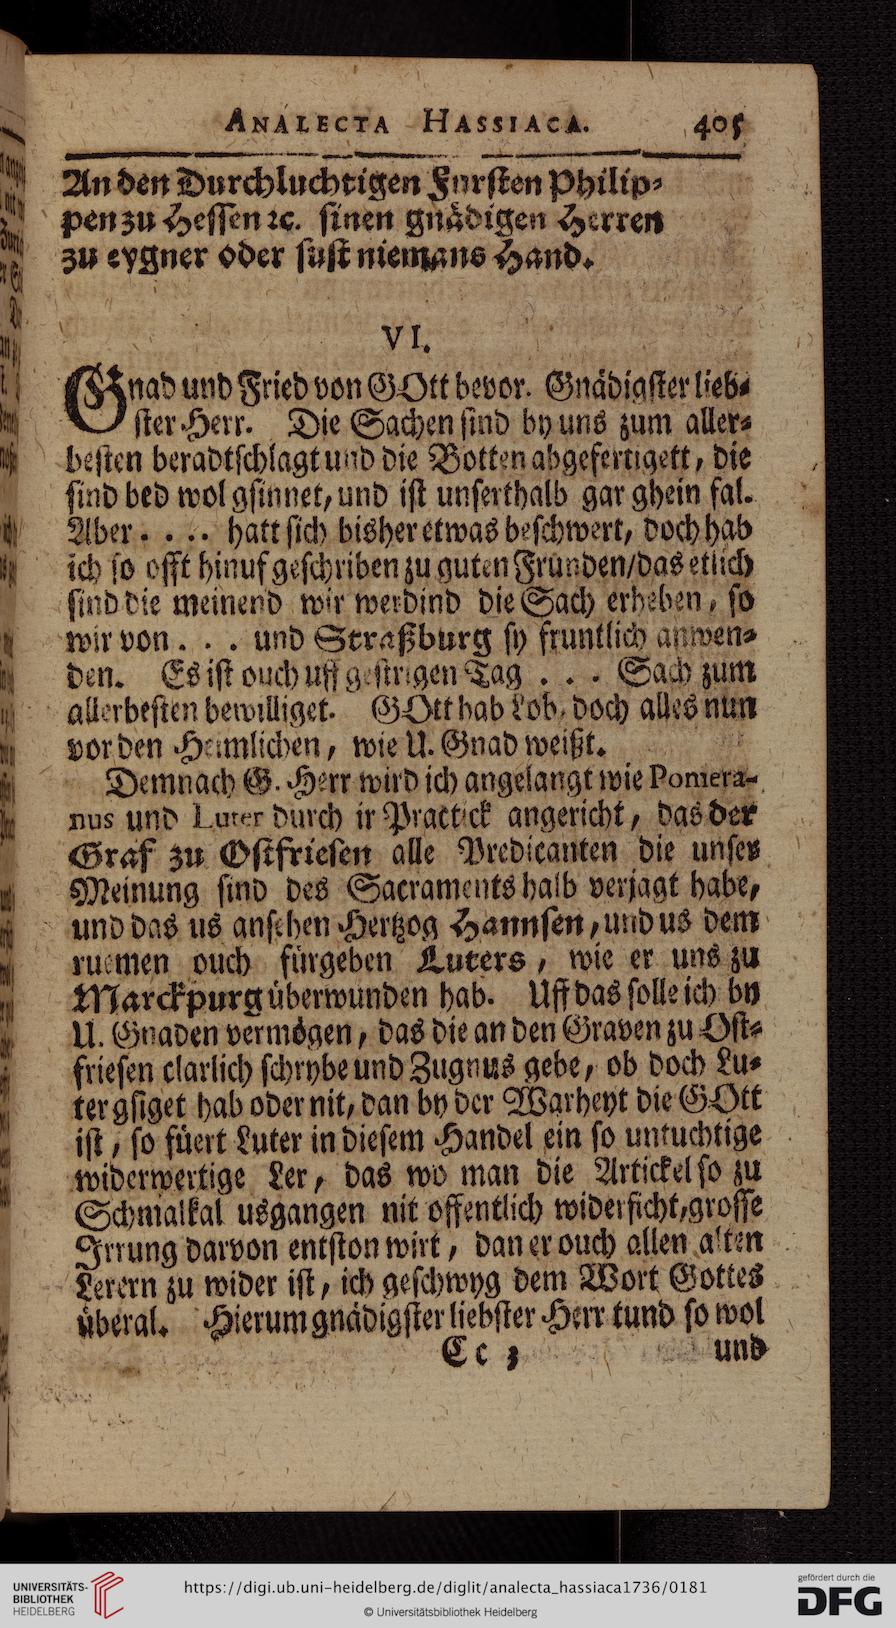 ANALECTA HASSIACA. 405
An den Durchluchtigen Fursten Philip-
pen zu Hessen ꝛc. sinen gnädigen Herren
zu eygner oder sust niemans Hand.
VI.
Gnad und Fried von GOtt bevor. Gnädigster lieb-
ster Herr. Die Sachen sind by uns zum aller-
besten beradtschlagt und die Botten abgefertigett, die
sind bed wol gsinnet, und ist unserthalb gar ghein fal.
Aber . . . . hatt sich bisher etwas beschwert, doch hab
ich so offt hinuf geschriben zu guten Frunden/das etlich
sind die meinend wir werdind die Sach erheben, so
wir von . . . und Straßburg sy fruntlich anwen-
den. Es ist ouch uff gestrigen Tag . . . Sach zum
allerbesten bewilliget. GOtt hab Lob, doch alles nun
vor den Heimlichen, wie U. Gnad weißt.
Demnach G. Herr wird ich angelangt wie Pomera-
nus und Luter durch ir Practick angericht, das der
Graf zu Ostfriesen alle Predicanten die unser
Meinung sind des Sacraments halb verjagt habe,
und das us ansehen Hertzog Hannsen, und us dem
ruemen ouch fürgeben Luters, wie er uns zu
Marckpurg überwunden hab. Uff das solle ich by
U. Gnaden vermögen, das die an den Graven zu Ost-
friesen clarlich schrybe und Zugnus gebe, ob doch Lu-
ter gsiget hab oder nit, dan by der Warheyt die GOtt
ist, so füert Luter in diesem Handel ein so untuchtige
widerwertige Ler, das wo man die Artickel so zu
Schmalkal usgangen nit offentlich widerficht, grosse
Irrung darvon entston wirt, dan er ouch allen alten
Lerern zu wider ist, ich geschwyg dem Wort Gottes
überal. Hierum gnädigster liebster Herr tund so wol
Cc 3 und
UNIVERSITÄTS-
BIBLIOTHEK
HEIDELBERG
https://digi.ub.uni-heidelberg.de/diglit/analecta_hassiaca1736/0181
© Universitätsbibliothek Heidelberg
gefördert durch die
DFG